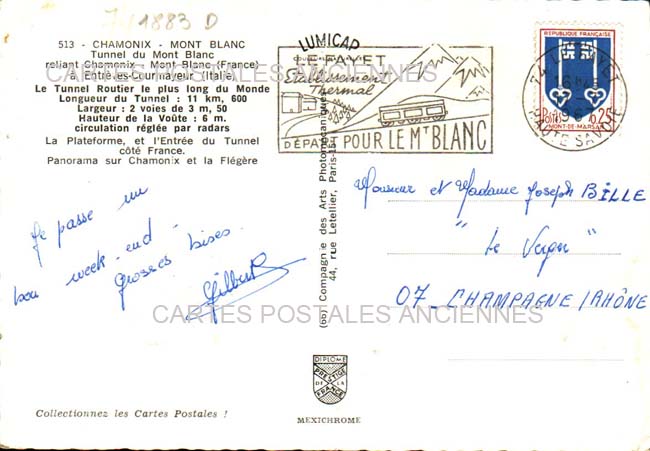 7-/1883 D
513 - CHAMONIX - MONT BLANC
Tunnel du Mont Blanc
reliant Chamonix - Mont-Blanc (France)
à Entrèves-Courmayeur (Italie)
Le Tunnel Routier le plus long du Monde
Longueur du Tunnel : 11 km, 600
Largeur : 2 voies de 3 m, 50
Hauteur de la Voûte : 6 m.
circulation réglée par radars
La Plateforme, et l'Entrée du Tunnel
côté France.
Panorama sur Chamonix et la Flégère
LUMICAP
LE FAYET
Etablissement
Thermal
DÉPART POUR LE MT BLANC
RÉPUBLIQUE FRANÇAISE
POSTES 0,25
MONT-DE-MARSAN
74 LE FAYET
HAUTE SAVOIE
CARTES POSTALES ANCIENNES
Je passe un
bon week-end.
Grosses bises.
Gilbert
(66) Compagnie des Arts Photomécaniques
44, rue Letellier, Paris-15e
Monsieur et Madame Joseph BILLE
" Le Verger "
07_CHAMPAGNE/RHÔNE
CARTES POSTALES ANCIENNES
DIPLOME
PRESTIGE
DE LA
FRANCE
Collectionnez les Cartes Postales !
MEXICHROME